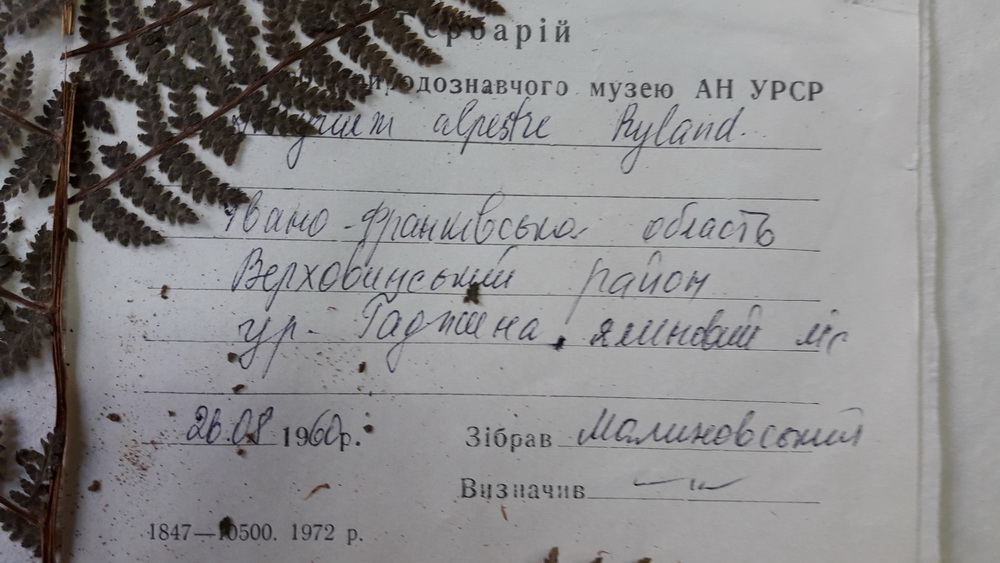 ербарій
природознавчого музею АН УРСР
alpestre Ryland.
Івано-Франківська область
Верховинський район
ур. Гаджина, ялиновий ліс
26.08 1960р.
Зібрав Малиновський
Визначив —"—
1847—10500. 1972 р.